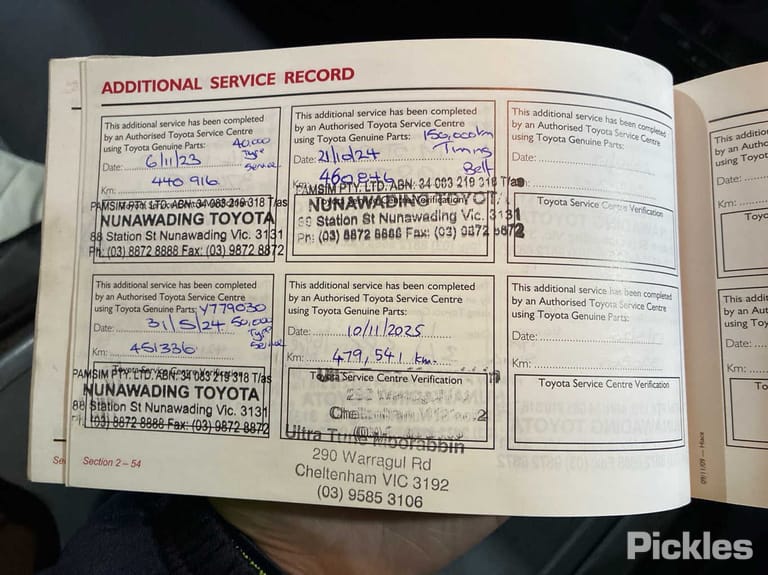 ADDITIONAL SERVICE RECORD
This additional service has been completed
by an Authorised Toyota Service Centre
using Toyota Genuine Parts: 40,000
Type
Service
Date: 6/11/23
Km: 440 916
PAMSIM PTY. LTD. ABN: 34 083 219 318 T/as
NUNAWADING TOYOTA
88 Station St Nunawading Vic. 3131
Ph: (03) 8872 8888 Fax: (03) 9872 8872
This additional service has been completed
by an Authorised Toyota Service Centre
using Toyota Genuine Parts: 150,000km
Timing
Belt
Date: 21/10/24
Km:
PAMSIM PTY. LTD. ABN: 34 083 219 318 T/as
NUNAWADING TOYOTA
Station St Nunawading Vic. 3131
Ph: (03) 8872 8888 Fax: (03) 9872 8872
This additional service has been completed
by an Authorised Toyota Service Centre
using Toyota Genuine Parts:
Date:
Km:
Toyota Service Centre Verification
This additional service has been completed
by an Authorised Toyota Service Centre
using Toyota Genuine Parts: Y779030
Date: 31/5/24 50,000
Type
Service
Km: 451336
Toyota Service Centre Verification
PAMSIM PTY. LTD. ABN: 34 083 219 318 T/as
NUNAWADING TOYOTA
88 Station St Nunawading Vic. 3131
Ph: (03) 8872 8888 Fax: (03) 9872 8872
This additional service has been completed
by an Authorised Toyota Service Centre
using Toyota Genuine Parts:
Date: 10/11/2025
Km: 479,541 km.
Toyota Service Centre Verification
Ultra Tune Moorabbin
290 Warragul Rd
Cheltenham VIC 3192
(03) 9585 3106
This additional service has been completed
by an Authorised Toyota Service Centre
using Toyota Genuine Parts:
Date:
Km:
Toyota Service Centre Verification
Section 2 – 54
This additio
by an Autho
using Toyota
Date:
Km:
Toyo
This additi
by an Aut
using Toy
Date:
Km:
To
09/11/09 — Hiace
Pickles